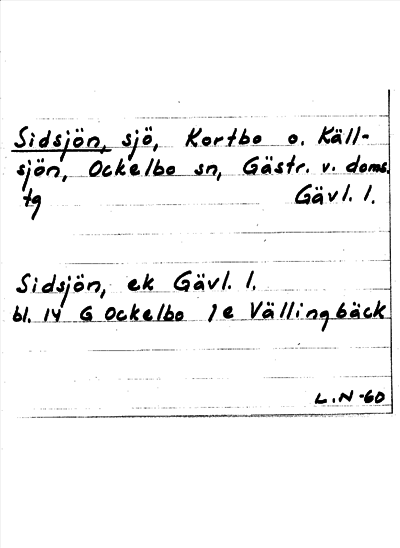 Sidsjön, sjö, Kortbo o. Käll-
sjön, Ockelbo sn, Gästr. v. doms.
tg Gävl. l.
Sidsjön, ek Gävl. l.
bl. 14 G Ockelbo 1e Vällingbäck
L.N-60